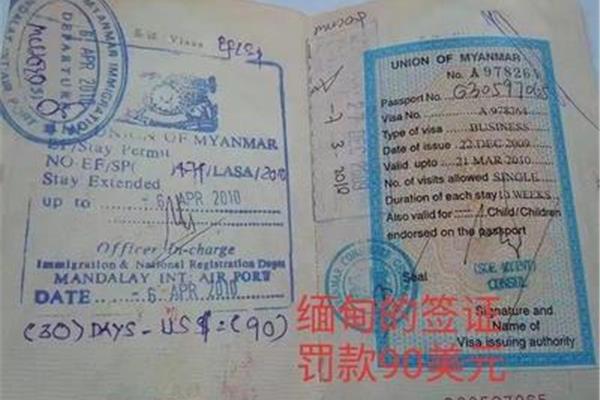 Visas
MYANMAR IMMIGRATION
6 APR 2010
DEPARTURE
UNION OF MYANMAR
Stay Permit
NO EF/SP( /LASA/2010
Stay Extended
up to - 6 APR 2010
Officer In-charge
Immigration & National Registration Dept:
MANDALAY INT: AIR PORT
DATE - 6 APR 2010
(30) DAYS - US $ = (90)
UNION OF MYANMAR
No. A 978264
Passport No. G30597065
Visa No. A 978264
Type of visa BUSINESS
Date of issue 22 DEC 2009
Valid upto 21 MAR 2010
No. of visits allowed SINGLE
Duration of each stay 10 WEEKS
Also valid for Child/Children
endorsed on the passport
Seal
CONSUL
Signature and
Name of
Visa issuing authority
缅甸的签证
罚款90美元